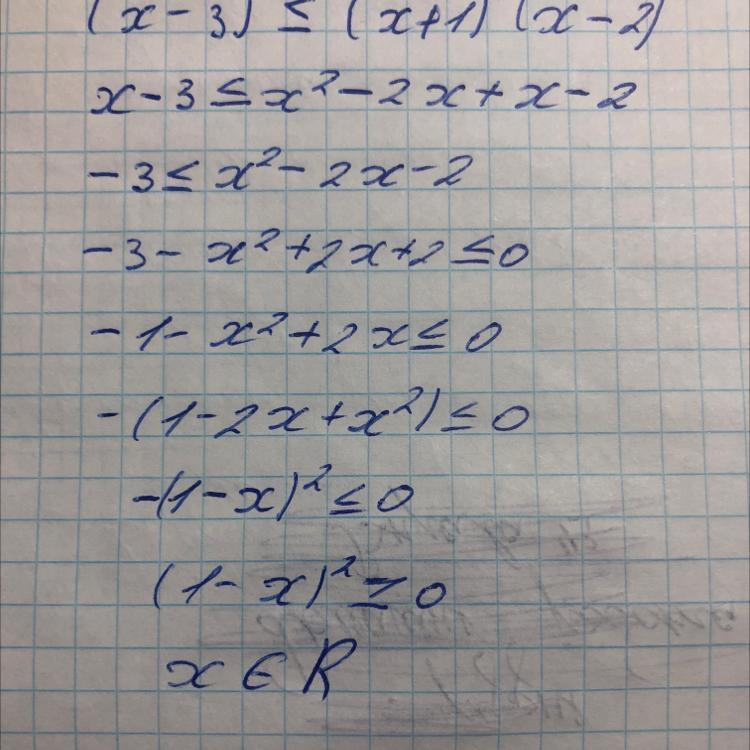 (x - 3) ≤ (x+1) (x - 2)
x - 3 ≤ x² - 2x + x - 2
- 3 ≤ x² - 2x - 2
- 3 - x² + 2x + 2 ≤ 0
- 1 - x² + 2x ≤ 0
- (1 - 2x + x²) ≤ 0
-(1 - x)² ≤ 0
(1 - x)² ≥ 0
x ∈ R